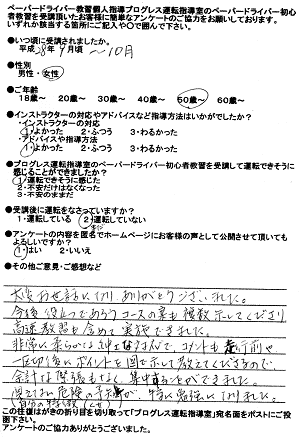 ペーパードライバー教習個人指導プログレス運転指導室のペーパードライバー初心
者教習を受講頂いたお客様に簡単なアンケートのご協力をお願いしております。
いずれか該当する箇所にご記入や○で囲んで下さい。
●いつ頃に受講されましたか。
平成 28年 9月頃 ～10月
●性別
男性・女性
●ご年齢
18歳～ 20歳～ 30歳～ 40歳～ 50歳～ 60歳～
●インストラクターの対応やアドバイスなど指導方法はいかがでしたか?
・インストラクターの対応
1・よかった 2・ふつう 3・わるかった
・アドバイスや指導方法
1・よかった 2・ふつう 3・わるかった
●プログレス運転指導室のペーパードライバー初心者教習を受講して運転できそうに
感じることができましたか?
1・運転できそうに感じた
2・不安だけはなくなった
3・不安のままだ
●受講後に運転をなさっていますか?
1・運転している 2・運転していない
●アンケートの内容を匿名でホームページにお客様の声として公開させて頂いても
よろしいですか?
1・はい 2・いいえ
●その他ご意見・ご感想など
大変お世話になり、ありがとうございました。
今後、役立つであろうコースの案も複数示してくださり
高速教習も含めて実施できました。
非常に柔らかな
一区切り後にポイントを図で示し教えてくださるので
余計な緊張もなく集中することができました。
危険の予知が、特に勉強になりました。
この往復はがきの折り目を切り取って「プログレス運転指導室」宛名面をポストにご投
函下さい。
アンケートのご協力ありがとうございました。